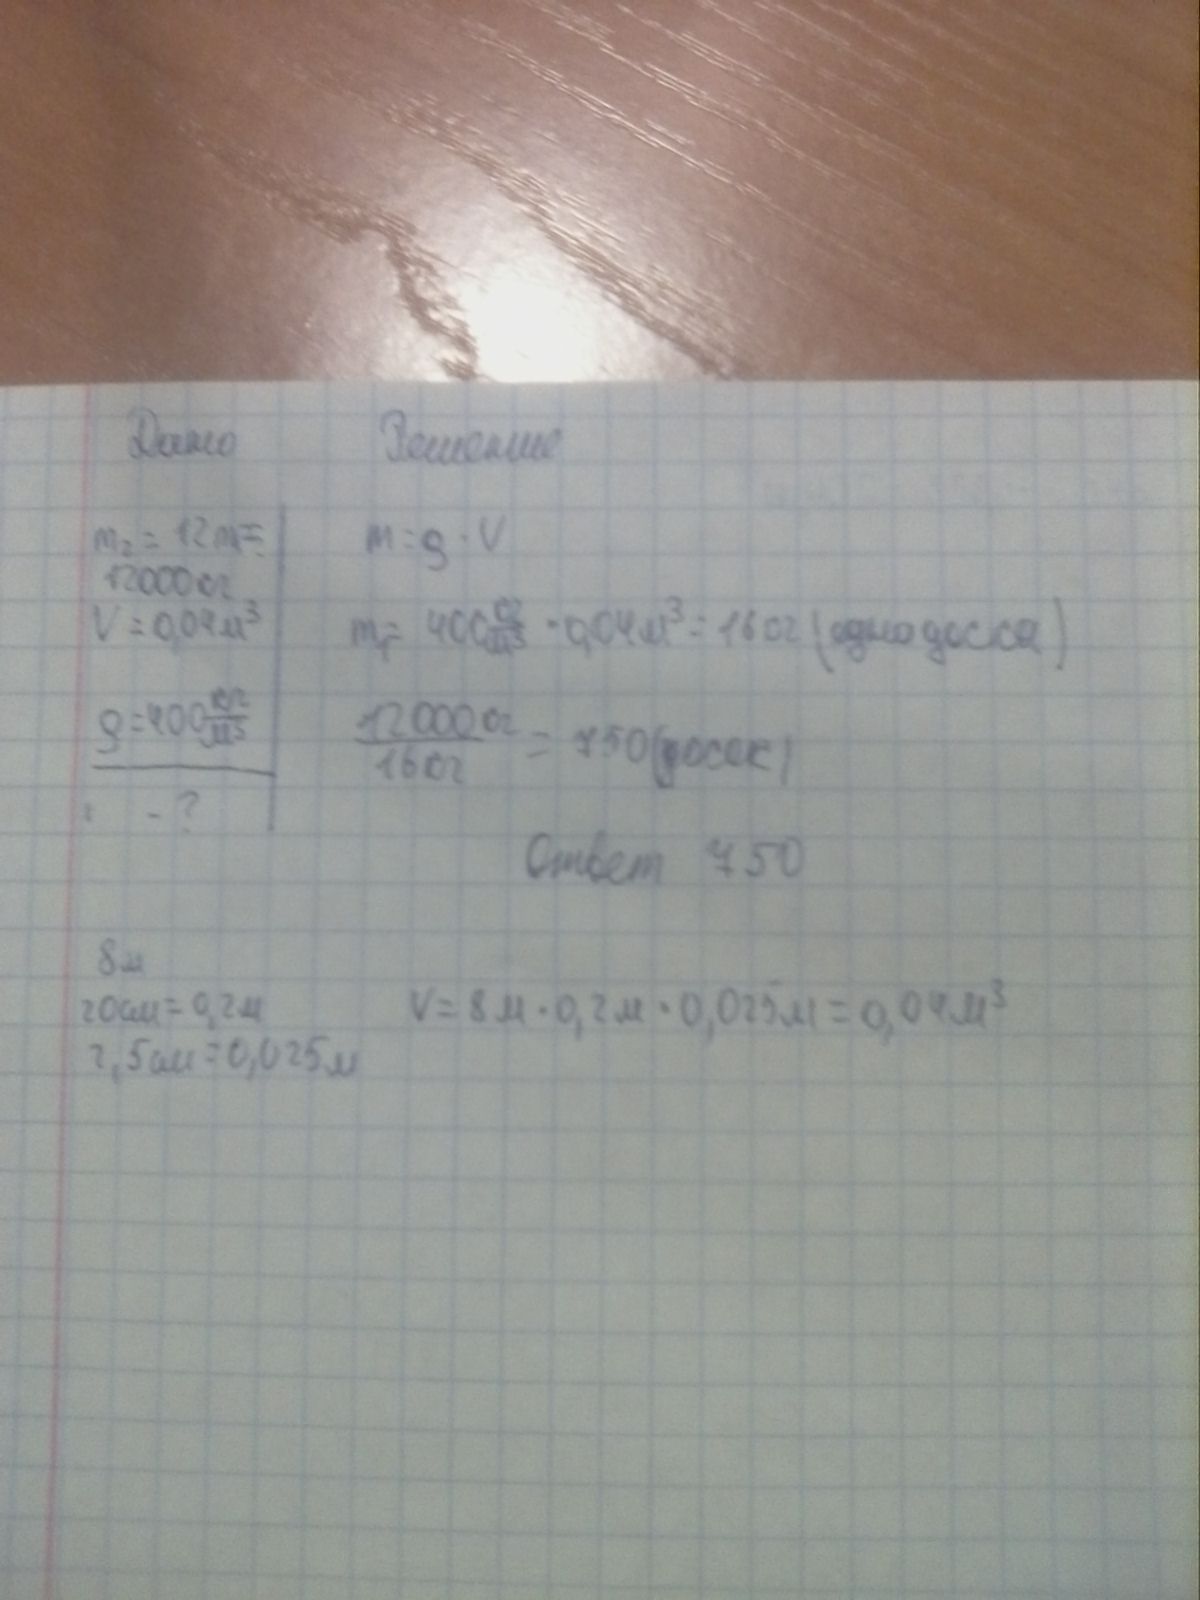 Дано Решение
m₂ = 12т =
12000кг
V = 0,04м³
ρ = 400 кг/м³
- ?
m = ρ · V
m₁ = 400 кг/м³ · 0,04м³ = 16кг (одна доска)
12000кг / 16кг = 750 (досок)
Ответ 750
8м
20см = 0,2м
2,5см = 0,025м
V = 8м · 0,2м · 0,025м = 0,04м³